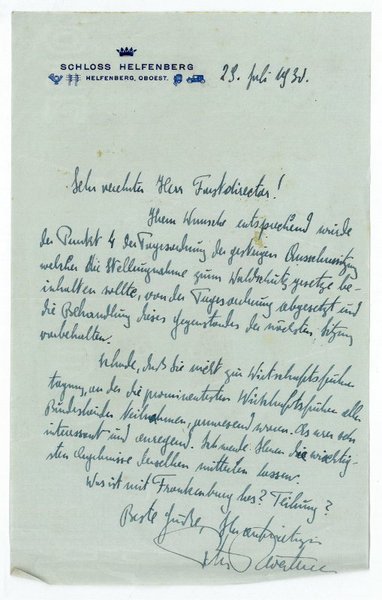 SCHLOSS HELFENBERG
HELFENBERG, OBOEST.
23. Juli 1930.
Sehr verehrter Herr Forstdirector!
Ihrem Wunsche entsprechend wurde
der Punkt 4 der Tagesordnung der gestrigen Ausschusssitzung
welcher die Stellungnahme zum Waldschutzgesetze be-
inhalten sollte, von der Tagesordnung abgesetzt und
die Behandlung dieses Gegenstandes der nächsten Sitzung
vorbehalten.
Schade, daß Sie nicht zur Wirtschaftsführer
tagung, an der die prominentesten Wirtschaftsführer aller
Bundesländer teilnahmen, anwesend waren. Es war sehr
interessant und anregend. Ich werde Ihnen die wichtig-
sten Ergebnisse derselben mitteilen lassen.
Was ist mit Frankenburg los? Teilung?
Beste Grüße, Ihr